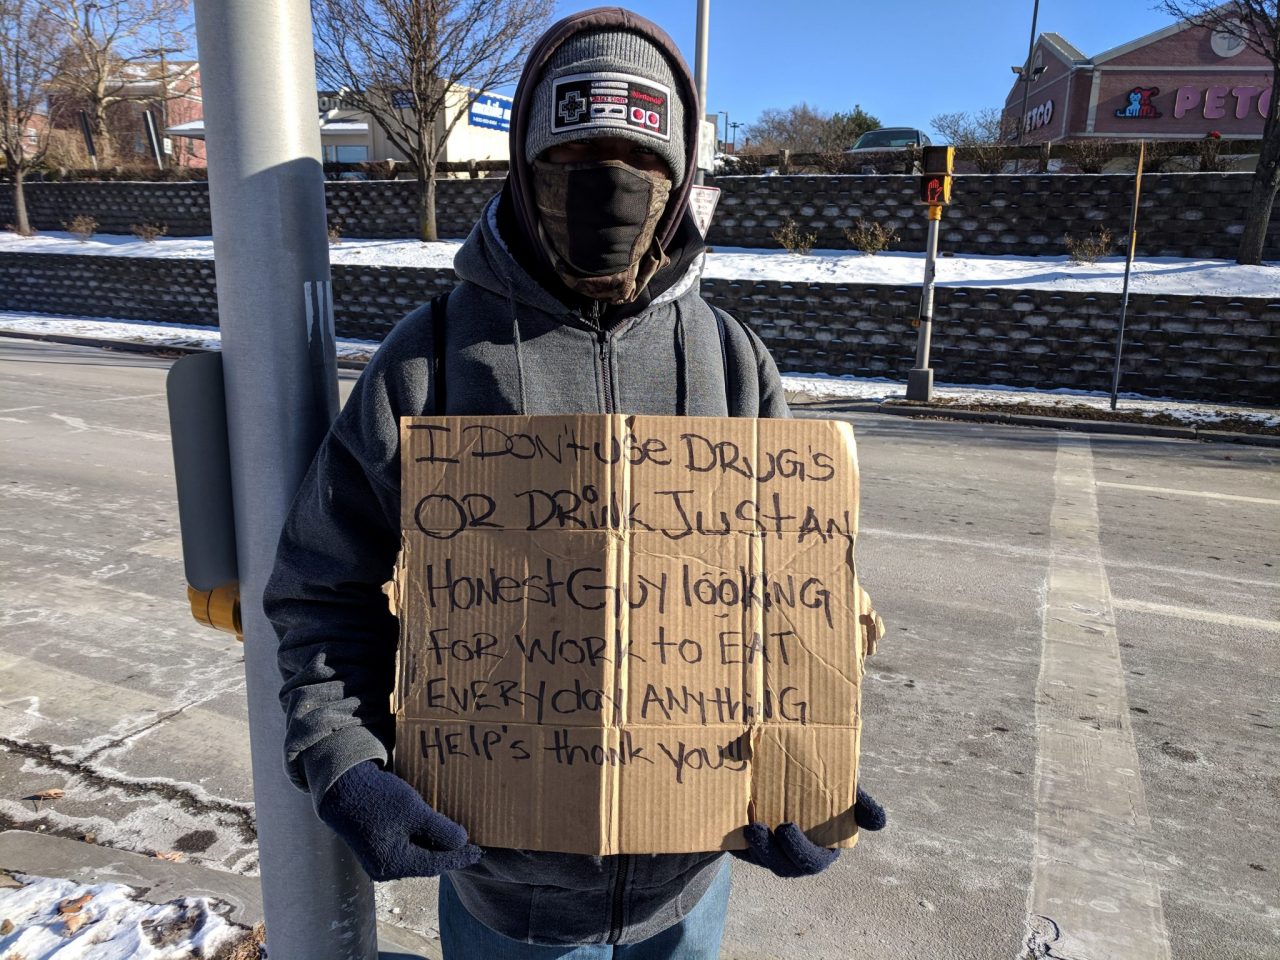 Nintendo
SELECT START
PETCO
PETC
I DON't USE DRUG'S
OR DRiNK JUSt AN
HONEst GUY lOOKiNG
FOR WORK to EAT
EVERYday ANYthiNG
HELP'S thank YOU!!